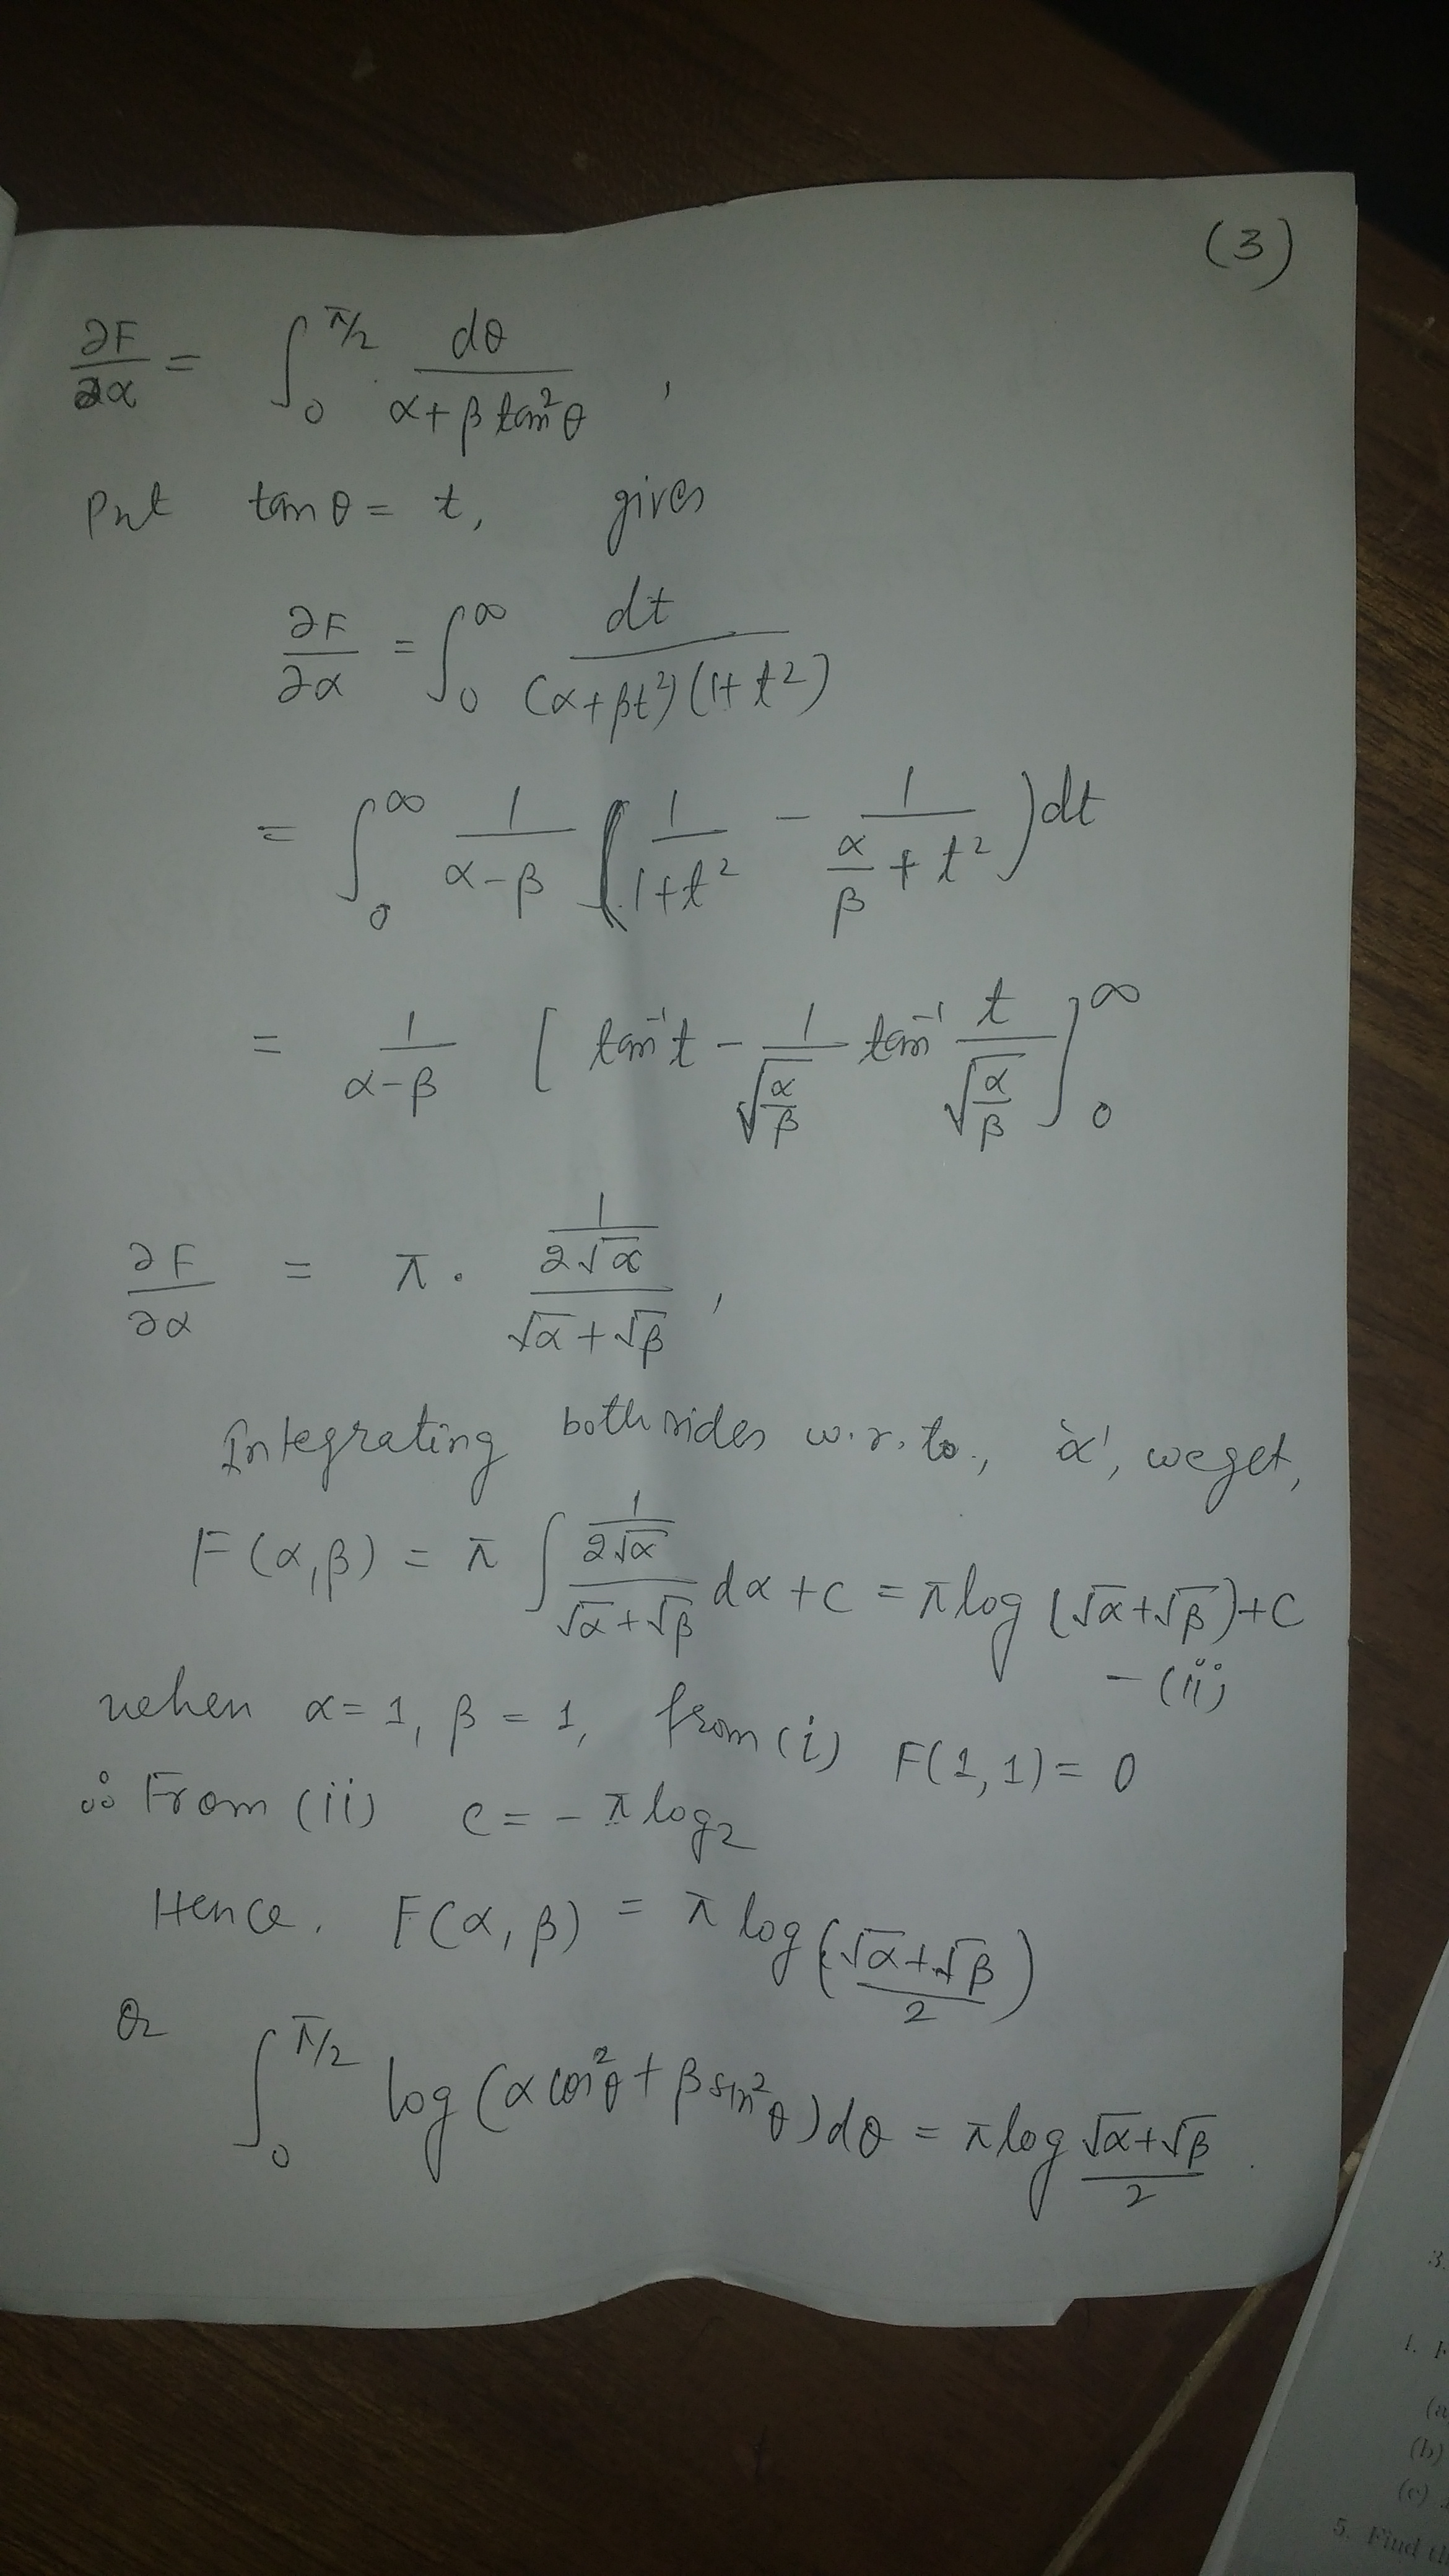 (3)
∂F/∂α = ∫₀^{π/2} dθ/(α+β tan²θ) ,
Put tan θ = t, gives
∂F/∂α = ∫₀^∞ dt/((α+βt²)(1+t²))
= ∫₀^∞ 1/(α-β) (1/(1+t²) - 1/(α/β + t²)) dt
= 1/(α-β) [tan⁻¹t - 1/√(α/β) tan⁻¹ t/√(α/β)]₀^∞
∂F/∂α = π · (1/(2√α))/(√α+√β) ,
Integrating both sides w.r. to., 'α', we get,
F(α,β) = π ∫ (1/(2√α))/(√α+√β) dα + c = π log (√α+√β)+C
- (ii)
when α = 1, β = 1, from (i) F(1,1) = 0
∴ From (ii) c = - π log 2
Hence. F(α, β) = π log ((√α+√β)/2)
Or ∫₀^{π/2} log (α cos²θ + β sin²θ) dθ = π log (√α+√β)/2 .
3.
1.
(a
(b)
(c)
5. Find th